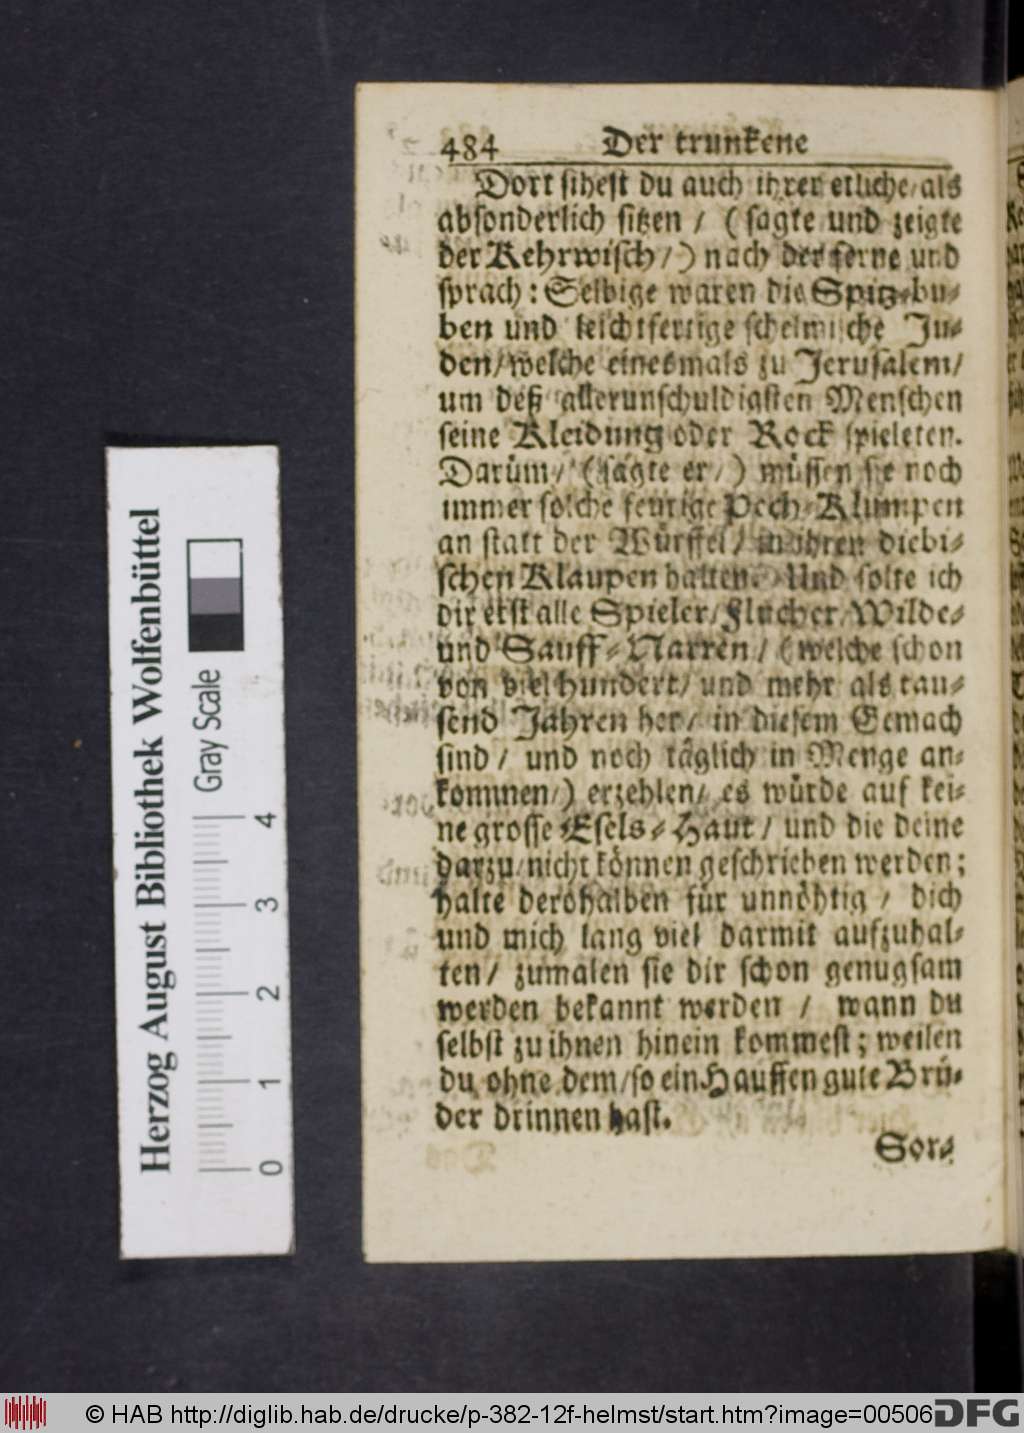 484 Der trunkene
Dort sihest du auch ihrer etliche/als
absonderlich sitzen / (sagte und zeigte
der Kehrwisch/) nach der ferne und
sprach: Selbige waren die Spitz-bu-
ben und leichtfertige schelmische Ju-
den/welche einesmals zu Jerusalem/
um deß allerunschuldigsten Menschen
seine Kleidung oder Rock spieleten.
Darüm/ (sagte er/) müssen sie noch
immer solche feurige Pech-Klumpen
an statt der Würffel/ in ihren diebi-
schen Klaupen halten. Und solte ich
dir erst alle Spieler/Flucher/Wilde-
und Sauff-Narren/ (welche schon
von viel hundert/ und mehr als tau-
send Jahren her/ in diesem Gemach
sind/ und noch täglich in Menge an-
kommen/) erzehlen/ es würde auf kei-
ne grosse Esels-Haut/ und die deine
darzu/nicht können geschrieben werden;
halte derohalben für unnöhtig / dich
und mich lang viel darmit aufzuhal-
ten/ zumalen sie dir schon genugsam
werden bekannt werden / wann du
selbst zu ihnen hinein kommest; weilen
du ohne dem/so ein Hauffen gute Brü-
der drinnen hast.
Sor-
Herzog August Bibliothek Wolfenbüttel
Gray Scale
0 1 2 3 4
© HAB http://diglib.hab.de/drucke/p-382-12f-helmst/start.htm?image=00506
DFG